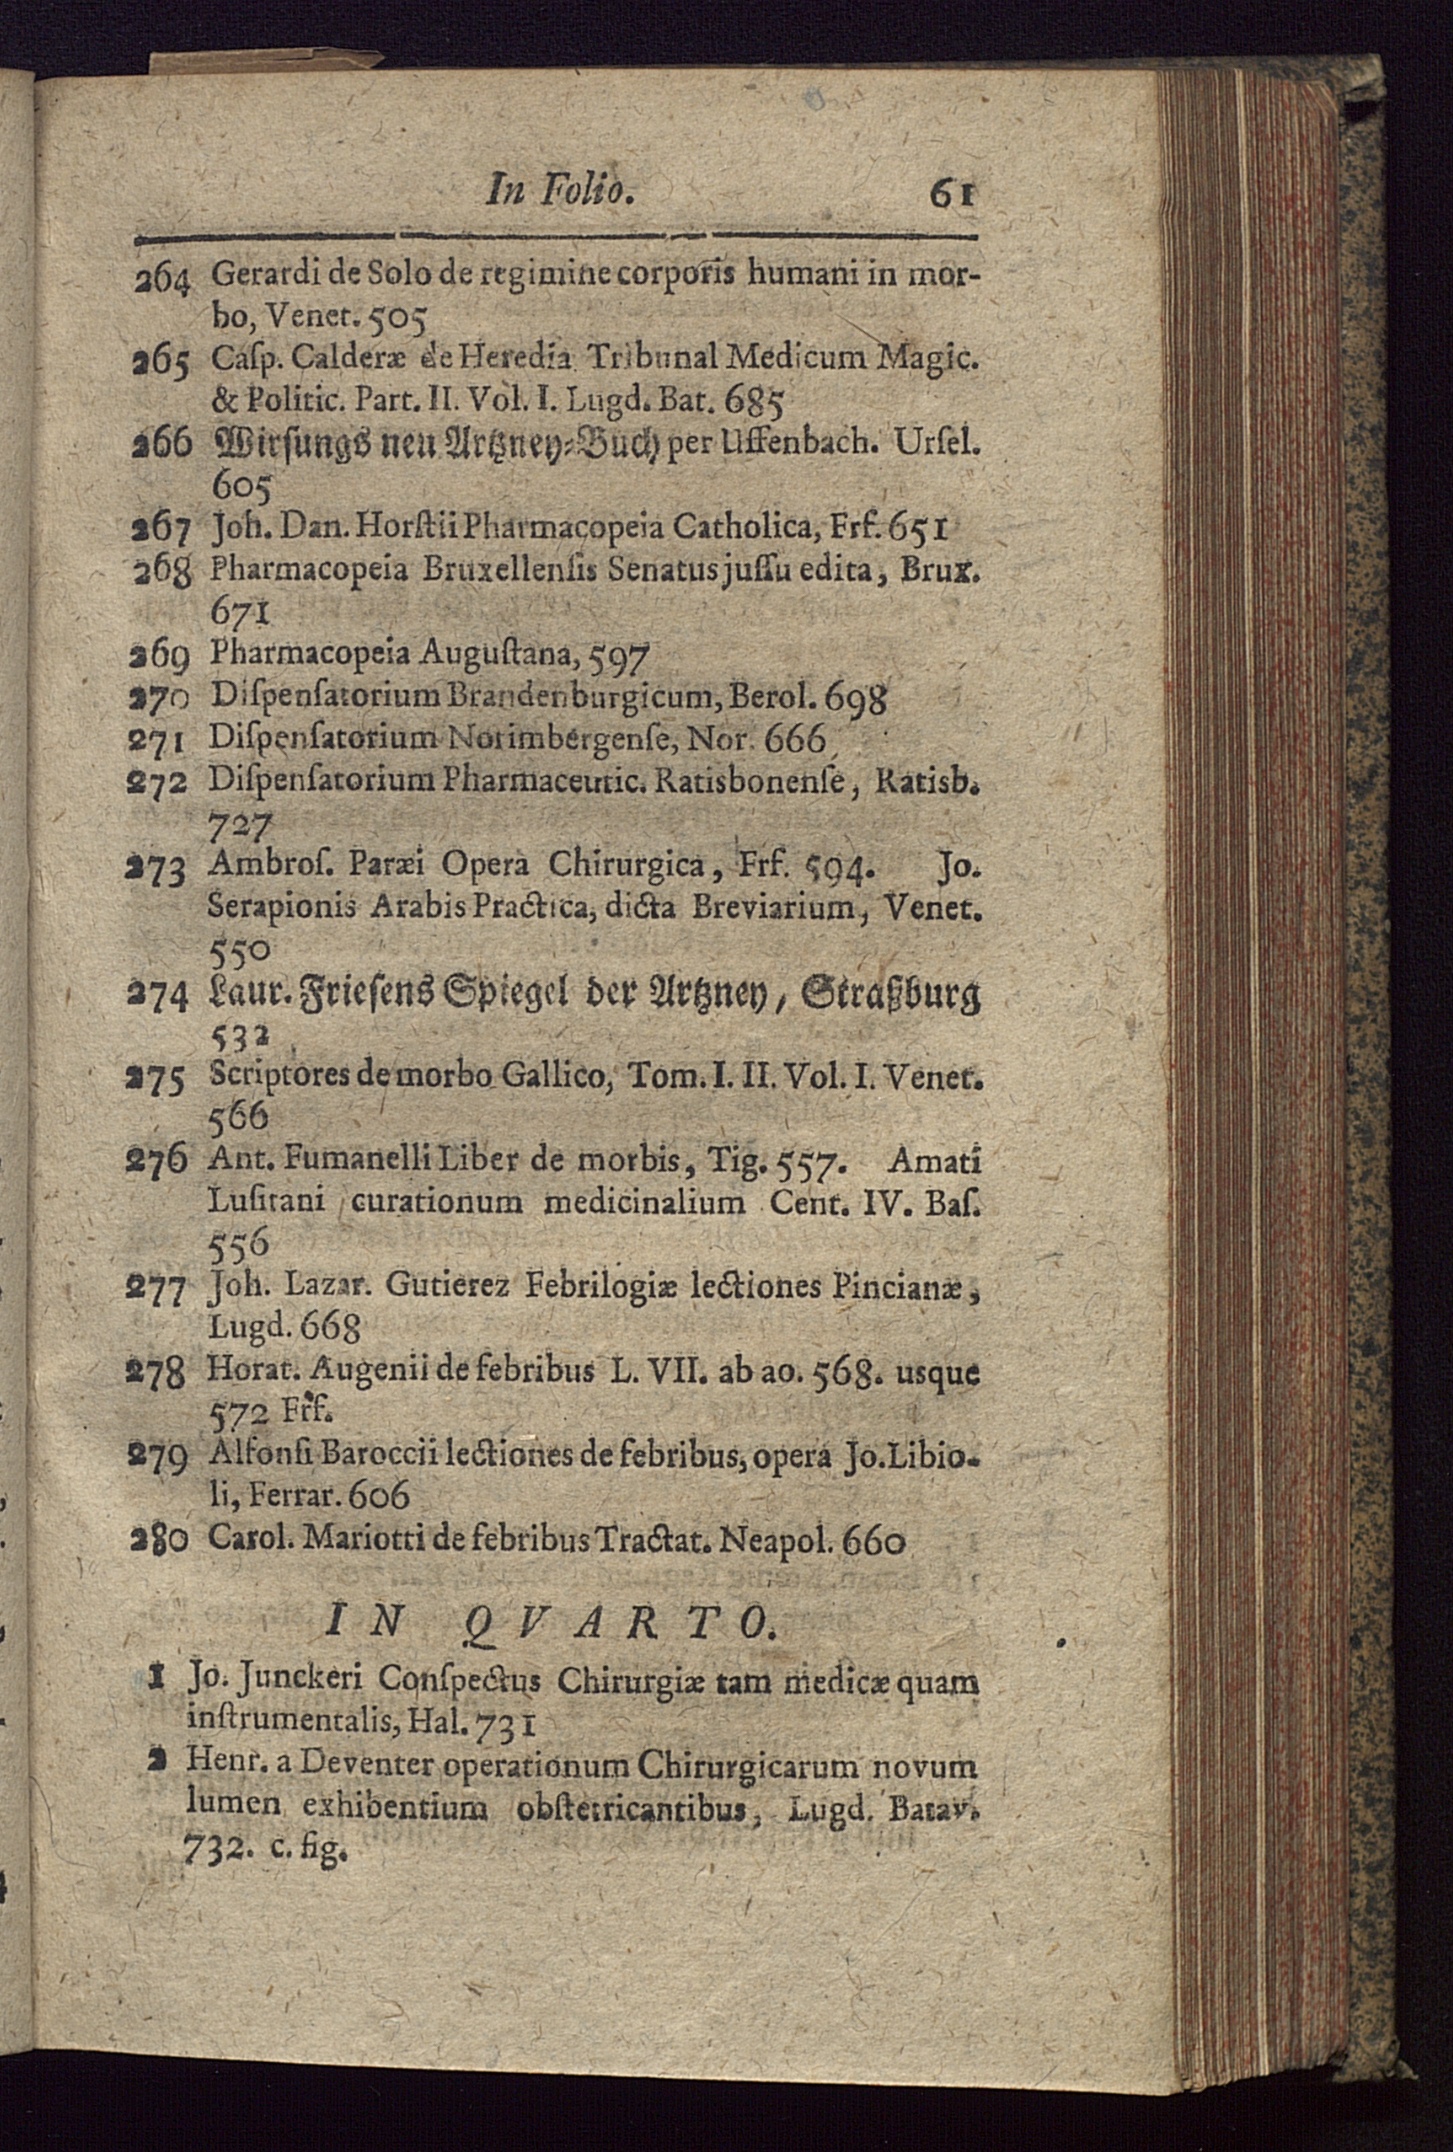 In Folio. 61
264 Gerardi de Solo de regimine corporis humani in mor-
bo, Venet. 505
265 Caſp. Calderæ de Heredia Tribunal Medicum Magic.
& Politic. Part. II. Vol. I. Lugd. Bat. 685
266 Wirſungs neu Artzney-Buch per Uffenbach. Urſel.
605
267 Joh. Dan. Horſtii Pharmacopeia Catholica, Frf. 651
268 Pharmacopeia Bruxellenſis Senatus juſſu edita, Brux.
671
269 Pharmacopeia Auguſtana, 597
270 Diſpenſatorium Brandenburgicum, Berol. 698
271 Diſpenſatorium Norimbergenſe, Nor. 666
272 Diſpenſatorium Pharmaceutic. Ratisbonenſe, Ratisb.
727
273 Ambroſ. Paræi Opera Chirurgica, Frf. 594. Jo.
Serapionis Arabis Practica, dicta Breviarium, Venet.
550
274 Laur. Frieſens Spiegel der Artzney, Straßburg
532
275 Scriptores de morbo Gallico, Tom. I. II. Vol. I. Venet.
566
276 Ant. Fumanelli Liber de morbis, Tig. 557. Amati
Luſitani curationum medicinalium Cent. IV. Baſ.
556
277 Joh. Lazar. Gutierez Febrilogiæ lectiones Pincianæ,
Lugd. 668
278 Horat. Augenii de febribus L. VII. ab ao. 568. usque
572 Frf.
279 Alfonſi Baroccii lectiones de febribus, opera Jo. Libio-
li, Ferrar. 606
280 Carol. Mariotti de febribus Tractat. Neapol. 660
IN QVARTO.
1 Jo. Junckeri Conſpectus Chirurgiæ tam medicæ quam
inſtrumentalis, Hal. 731
2 Henr. a Deventer operationum Chirurgicarum novum
lumen exhibentium obſtetricantibus, Lugd. Batav.
732. c. fig.